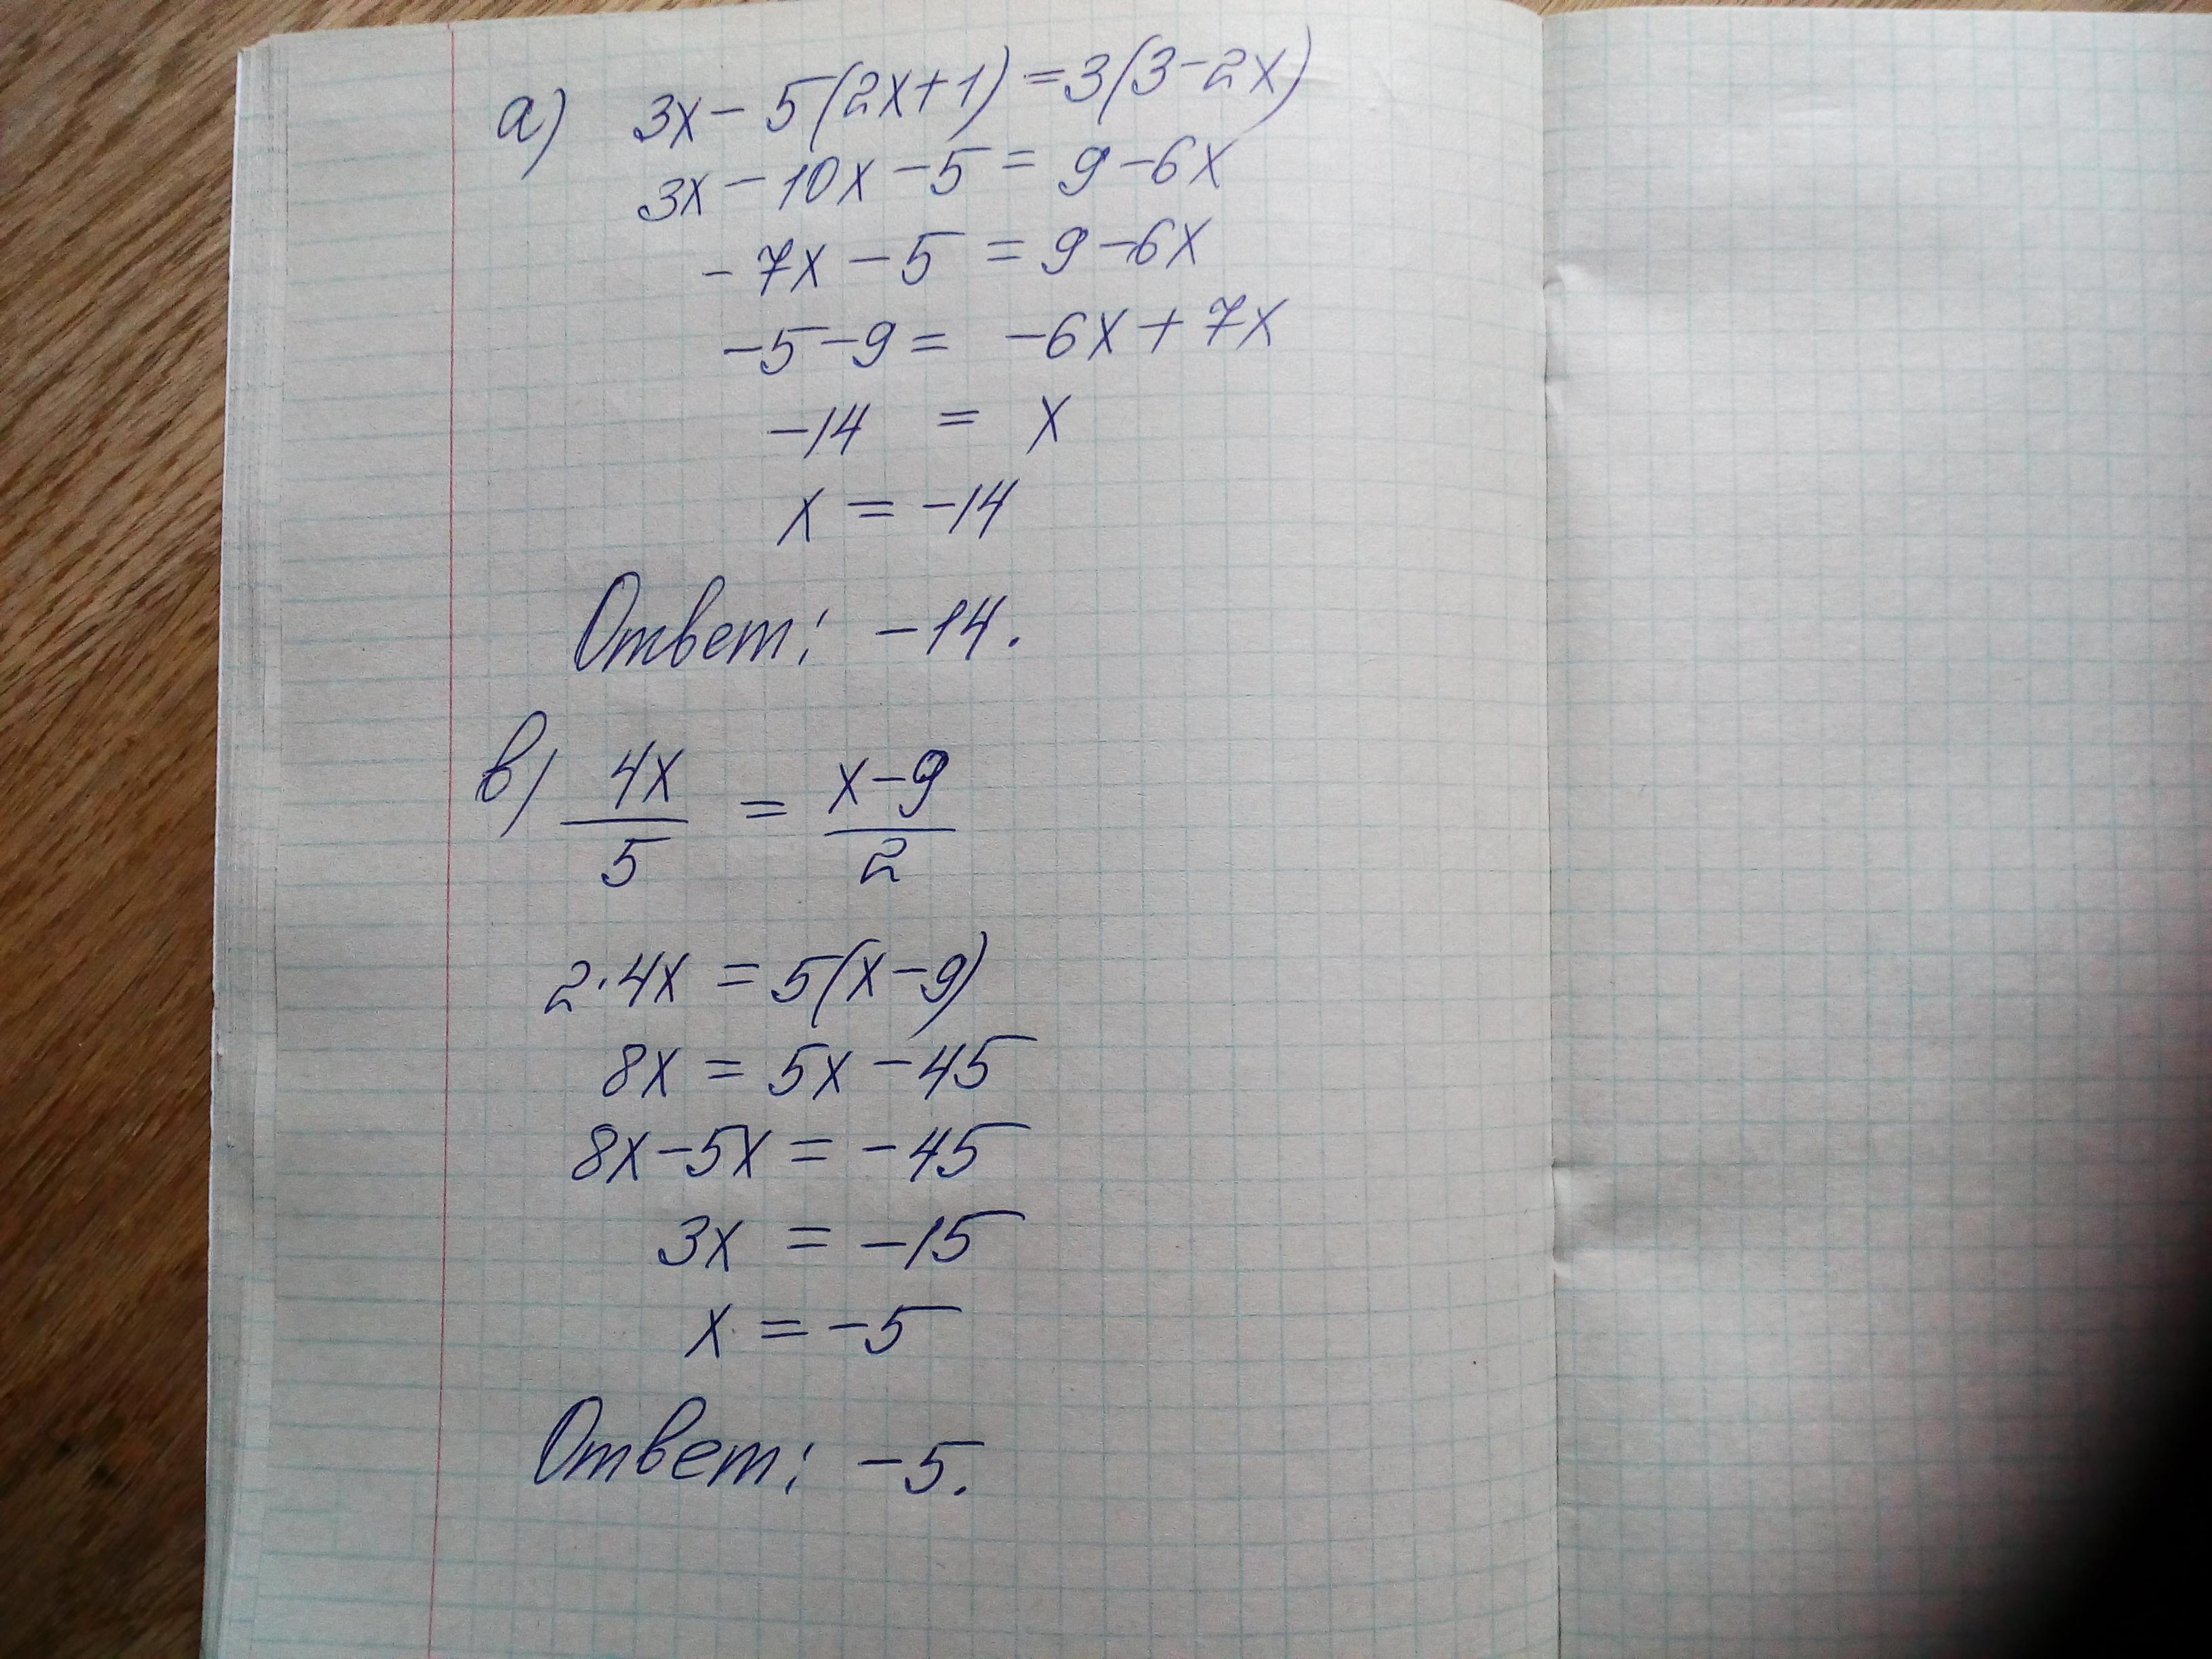 а) 3x - 5(2x+1) = 3(3-2x)
3x - 10x - 5 = 9 - 6x
- 7x - 5 = 9 - 6x
-5 - 9 = -6x + 7x
-14 = x
x = -14
Ответ: -14.
в) 4x/5 = x-9/2
2·4x = 5(x-9)
8x = 5x - 45
8x - 5x = -45
3x = -15
x = -5
Ответ: -5.